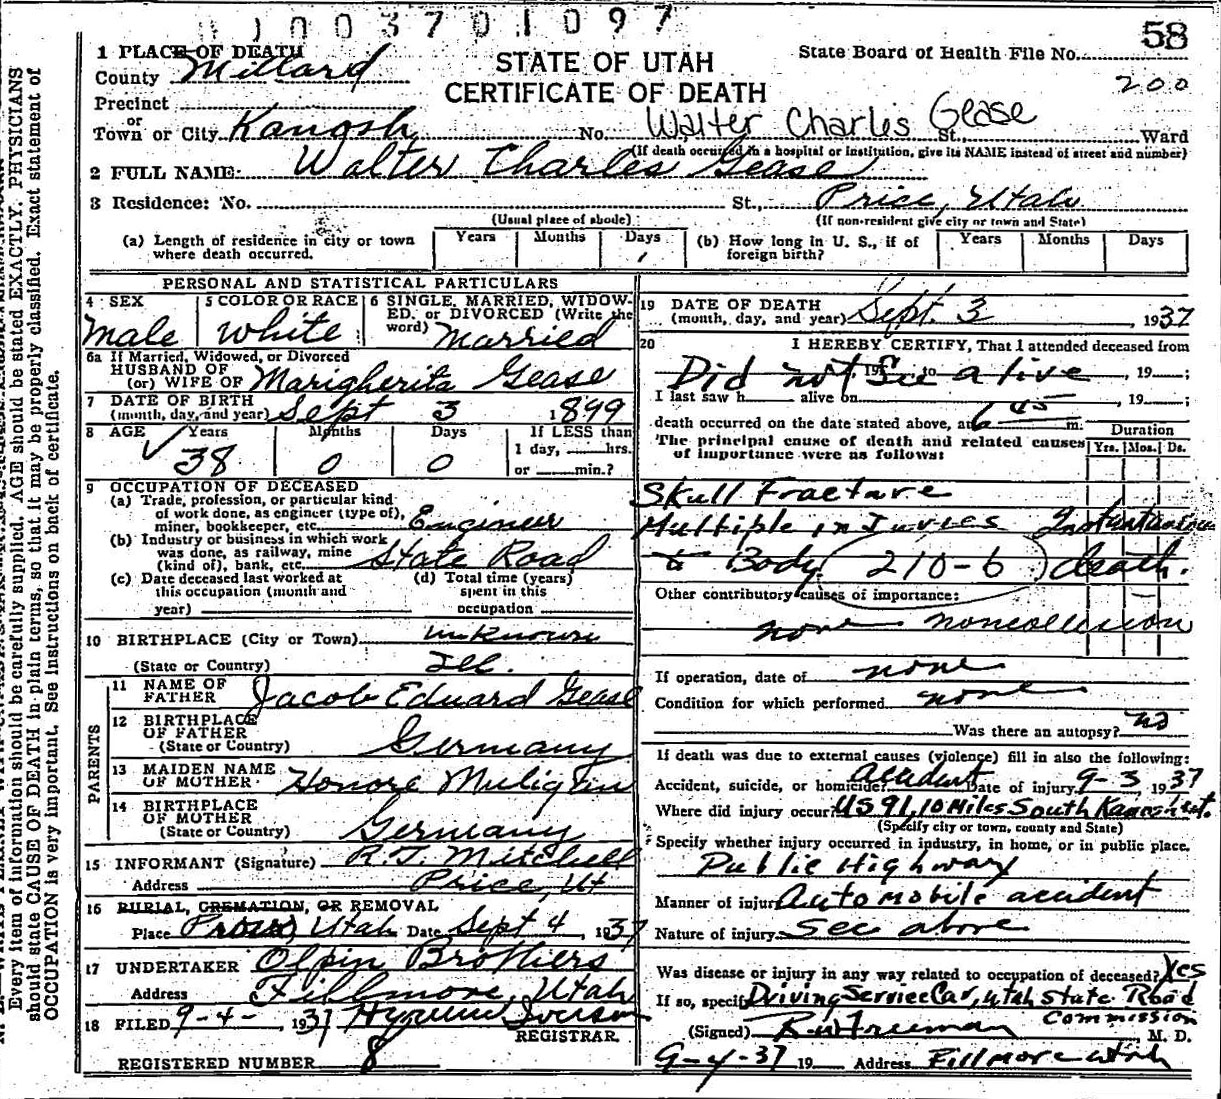 1003701097
58
STATE OF UTAH
CERTIFICATE OF DEATH
State Board of Health File No.
200
1 PLACE OF DEATH
County Millard
Precinct
or
Town or City Kanosh No. Walter Charles Gease St., Ward
(If death occurred in a hospital or institution, give its NAME instead of street and number)
2 FULL NAME: Walter Charles Gease
3 Residence: No. St., Price, Utah
(Usual place of abode) (If non-resident give city or town and State)
(a) Length of residence in city or town where death occurred. Years Months Days
(b) How long in U. S., if of foreign birth? Years Months Days
PERSONAL AND STATISTICAL PARTICULARS
4 SEX Male
5 COLOR OR RACE White
6 SINGLE, MARRIED, WIDOWED, or DIVORCED (Write the word) Married
6a If Married, Widowed, or Divorced
HUSBAND OF
(or) WIFE OF Marigherita Gease
7 DATE OF BIRTH
(month, day, and year) Sept 3 1899
8 AGE Years Months Days If LESS than
38 0 0 1 day, hrs.
or min.?
9 OCCUPATION OF DECEASED
(a) Trade, profession, or particular kind
of work done, as engineer (type of),
miner, bookkeeper, etc. Engineer
(b) Industry or business in which work
was done, as railway, mine
(kind of), bank, etc. State Road
(c) Date deceased last worked at
this occupation (month and
year)
(d) Total time (years)
spent in this
occupation
10 BIRTHPLACE (City or Town) unknown
(State or Country) Ill.
PARENTS
11 NAME OF FATHER Jacob Eduard Gease
12 BIRTHPLACE OF FATHER
(State or Country) Germany
13 MAIDEN NAME OF MOTHER Honore
14 BIRTHPLACE OF MOTHER
(State or Country) Germany
15 INFORMANT (Signature) R.J. Mitchell
Address Price, Ut
16 BURIAL, CREMATION, OR REMOVAL
Place Utah Date Sept 4, 1937
17 UNDERTAKER Olpin Brothers
Address Fillmore, Utah
18 FILED 9-4-, 1937 Hyrum Iverson
REGISTRAR.
REGISTERED NUMBER 8
19 DATE OF DEATH
(month, day, and year) Sept. 3, 1937
20 I HEREBY CERTIFY, That I attended deceased from
Did not See alive, 19 ;
I last saw h alive on , 19 ;
death occurred on the date stated above, at 6 45 m.
The principal cause of death and related causes
of importance were as follows:
Duration
Yrs. Mos. Ds.
Skull Fracture
Multiple injuries Instantaneous
to Body 210-6 death.
Other contributory causes of importance:
none noncollision
If operation, date of none
Condition for which performed none
Was there an autopsy? no
If death was due to external causes (violence) fill in also the following:
Accident, suicide, or homicide? Accident Date of injury 9-3, 1937
Where did injury occur? US 91, 10 Miles South Kanosh Ut.
(Specify city or town, county and State)
Specify whether injury occurred in industry, in home, or in public place.
Public Highway
Manner of injury Automobile accident
Nature of injury See above
Was disease or injury in any way related to occupation of deceased? Yes
If so, specify Driving Service Car, Utah State Road
Commission
(Signed) R.W. Freeman, M. D.
9-4-37 19 Address Fillmore Utah
Every item of information should be carefully supplied. AGE should be stated EXACTLY. PHYSICIANS
should state CAUSE OF DEATH in plain terms, so that it may be properly classified. Exact statement of
OCCUPATION is very important. See instructions on back of certificate.